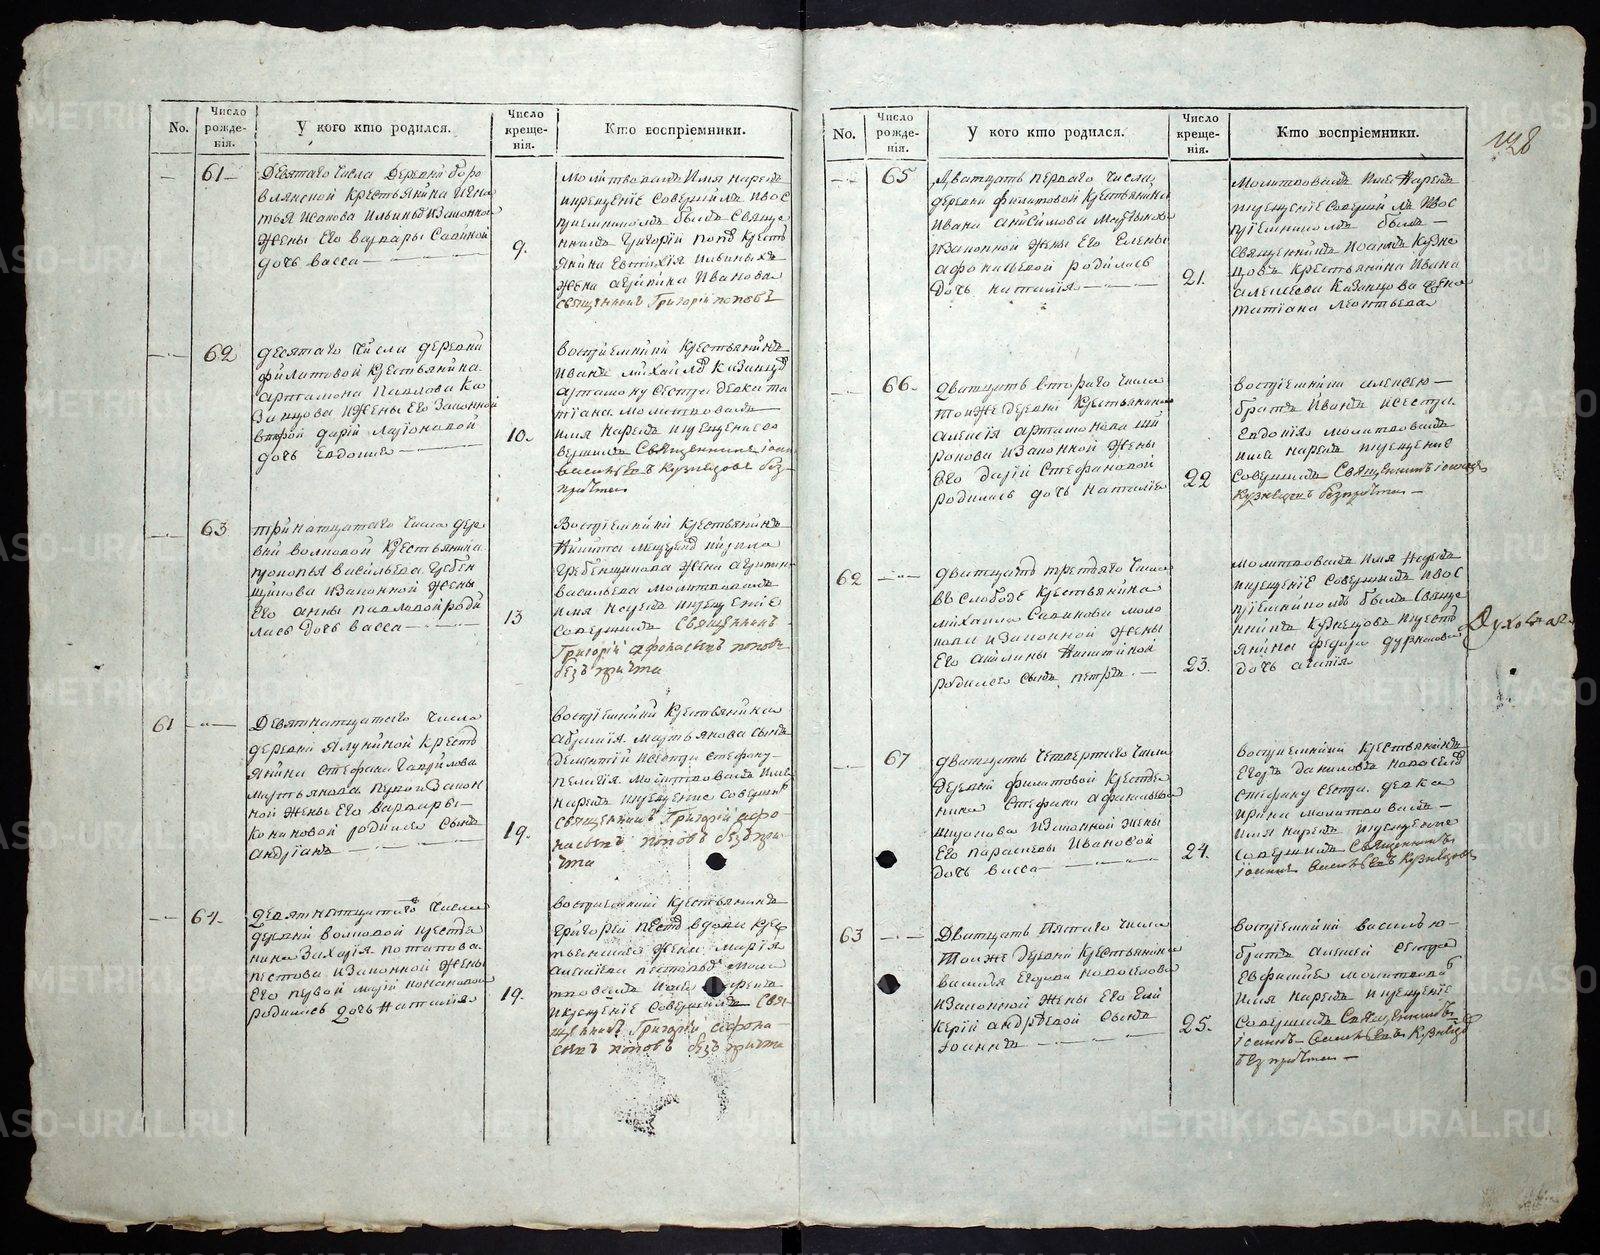 No.
Число рожде- нія.
У кого кто родился.
Число креще- нія.
Кто воспріемники.
61
Девятаго числа деревни боро
влянской крестьянина Игна
тья Ильиныхъ изаконной
жены его варвары Савиной
дочь васса
9.
молитвовалъ имя нарекъ
икрещенїе совершилъ ивос
прїемникомъ былъ Свяще
нникъ Григорїй попо крестъ
янина Ильиныхъ
жена Иванова
священникъ Григорїй поповъ
62
десятаго числа деревни
филатовой крестьянина
артамона Павлова ка
занцова ижены его законной
второй дарїи
дочь Евдокия
10.
воспрїемники крестьянинъ
Иванъ михайловъ казанцовъ
артамону сестра девка та
тїана молитвовалъ
имя нарекъ икрещение со
вершилъ Священникъ іоаннъ
васильевъ Кузнецовъ без
причта
63
тринатцатаго числа дере
вни волковой крестьянина
прокопья васильева гребен
щикова изаконной жены
его анны павловой роди
лась дочь васса
13
Воспрїемники крестьянинъ
Никита кирила
гребенщикова жена
васильева молитвовалъ
имя нарекъ икрещенїе
совершилъ Священникъ
Григорїй афонасьевъ поповъ
безъ причта
61
Девятнатцатаго числа
деревни Ялуниной кресть
янина стефана гаврилова
мартьянова первой закон
ной жены его варвары
кониковой родился сынъ
андрїанъ
19.
воспрїемники крестьянина
абрамїя мартьянова сынъ
дементїй исестра стефану
пелагїя. молитвовалъ имя
нарекъ икрещение соверши
священникъ Григорїй афо
насьевъ поповъ безъ при
чта
64.
Девятнатцатаго числа
деревни волковой кресть
нина Захарїя потапова
пестова изаконной жены
его первой марїи кононовой
родилась дочь Наталїя
19.
воспрїемники крестьянинъ
григорїй пестовъ вдовы крес
жена марїя
пестовыхъ моли
твовалъ имя нарекъ
икрещенїе совершилъ Свя
щенникъ Григорїй афона
сьевъ поповъ безъ причта
128
No.
Число рожде- нія.
У кого кто родился.
Число креще- нія.
Кто воспріемники.
65
Дватцать перваго числа
деревни филатовой крестьянина
Ивана анисимова
изаконной жены его Елены
афонасьевой родилась
дочь наталїя
21.
молитвовалъ имя нарекъ
икрещенїе совершилъ ивос
прїемникомъ былъ
Священникъ Иоаннъ Кузне
цовъ крестьянина Ивана
алексеева казанцова жена
татїана леонтьева
66.
Дватцать втораго числа
тоиже деревни крестьянина
алексїя артамонова ши
рокова изаконной жены
его дарїи стефановой
родилась дочь наталїя
22
воспрїемники алексею
братъ Иванъ исестра
Евдокїя молитвовалъ
имя нарекъ икрещение
совершилъ Священникъ іоаннъ
Кузнецовъ безпричта
62
дватцать третьяго числа
въ слободе крестьянина
михаила Савинова моло
кова изаконной жены
его акилины Никитиной
родился сынъ петръ.
23.
молитвовалъ имя нарекъ
икрещенїе совершилъ ивос
прїемникомъ былъ Свяще
нникъ Кузнецовъ икресть
янина федора дурнакова
дочь агапїя
Духовная
67
дватцать четвертаго числа
деревни филатовой крестья
нина Стефана афанасьева
широкова изаконной жены
его парасковьи Ивановой
дочь васса
24.
воспрїемники крестьянинъ
Егоръ даниловъ новоселовъ
стефану сестра девка
ирина молитвовалъ
имя нарекъ икрещение
совершилъ Священникъ
іоаннъ васильевъ Кузнецовъ
63
Дватцать пятаго числа
тоиже деревни крестьянина
василья Егорова новоселова
изаконной жены его гли
керїи андреевой сынъ
іоаннъ
25.
воспрїемники василью
братъ алексей сестра
Евфимия молитвовалъ
имя нарекъ икрещенїе
совершилъ Священникъ
іоаннъ васильевъ Кузнецовъ
безпричта
METRIKI.GASO-URAL.RU